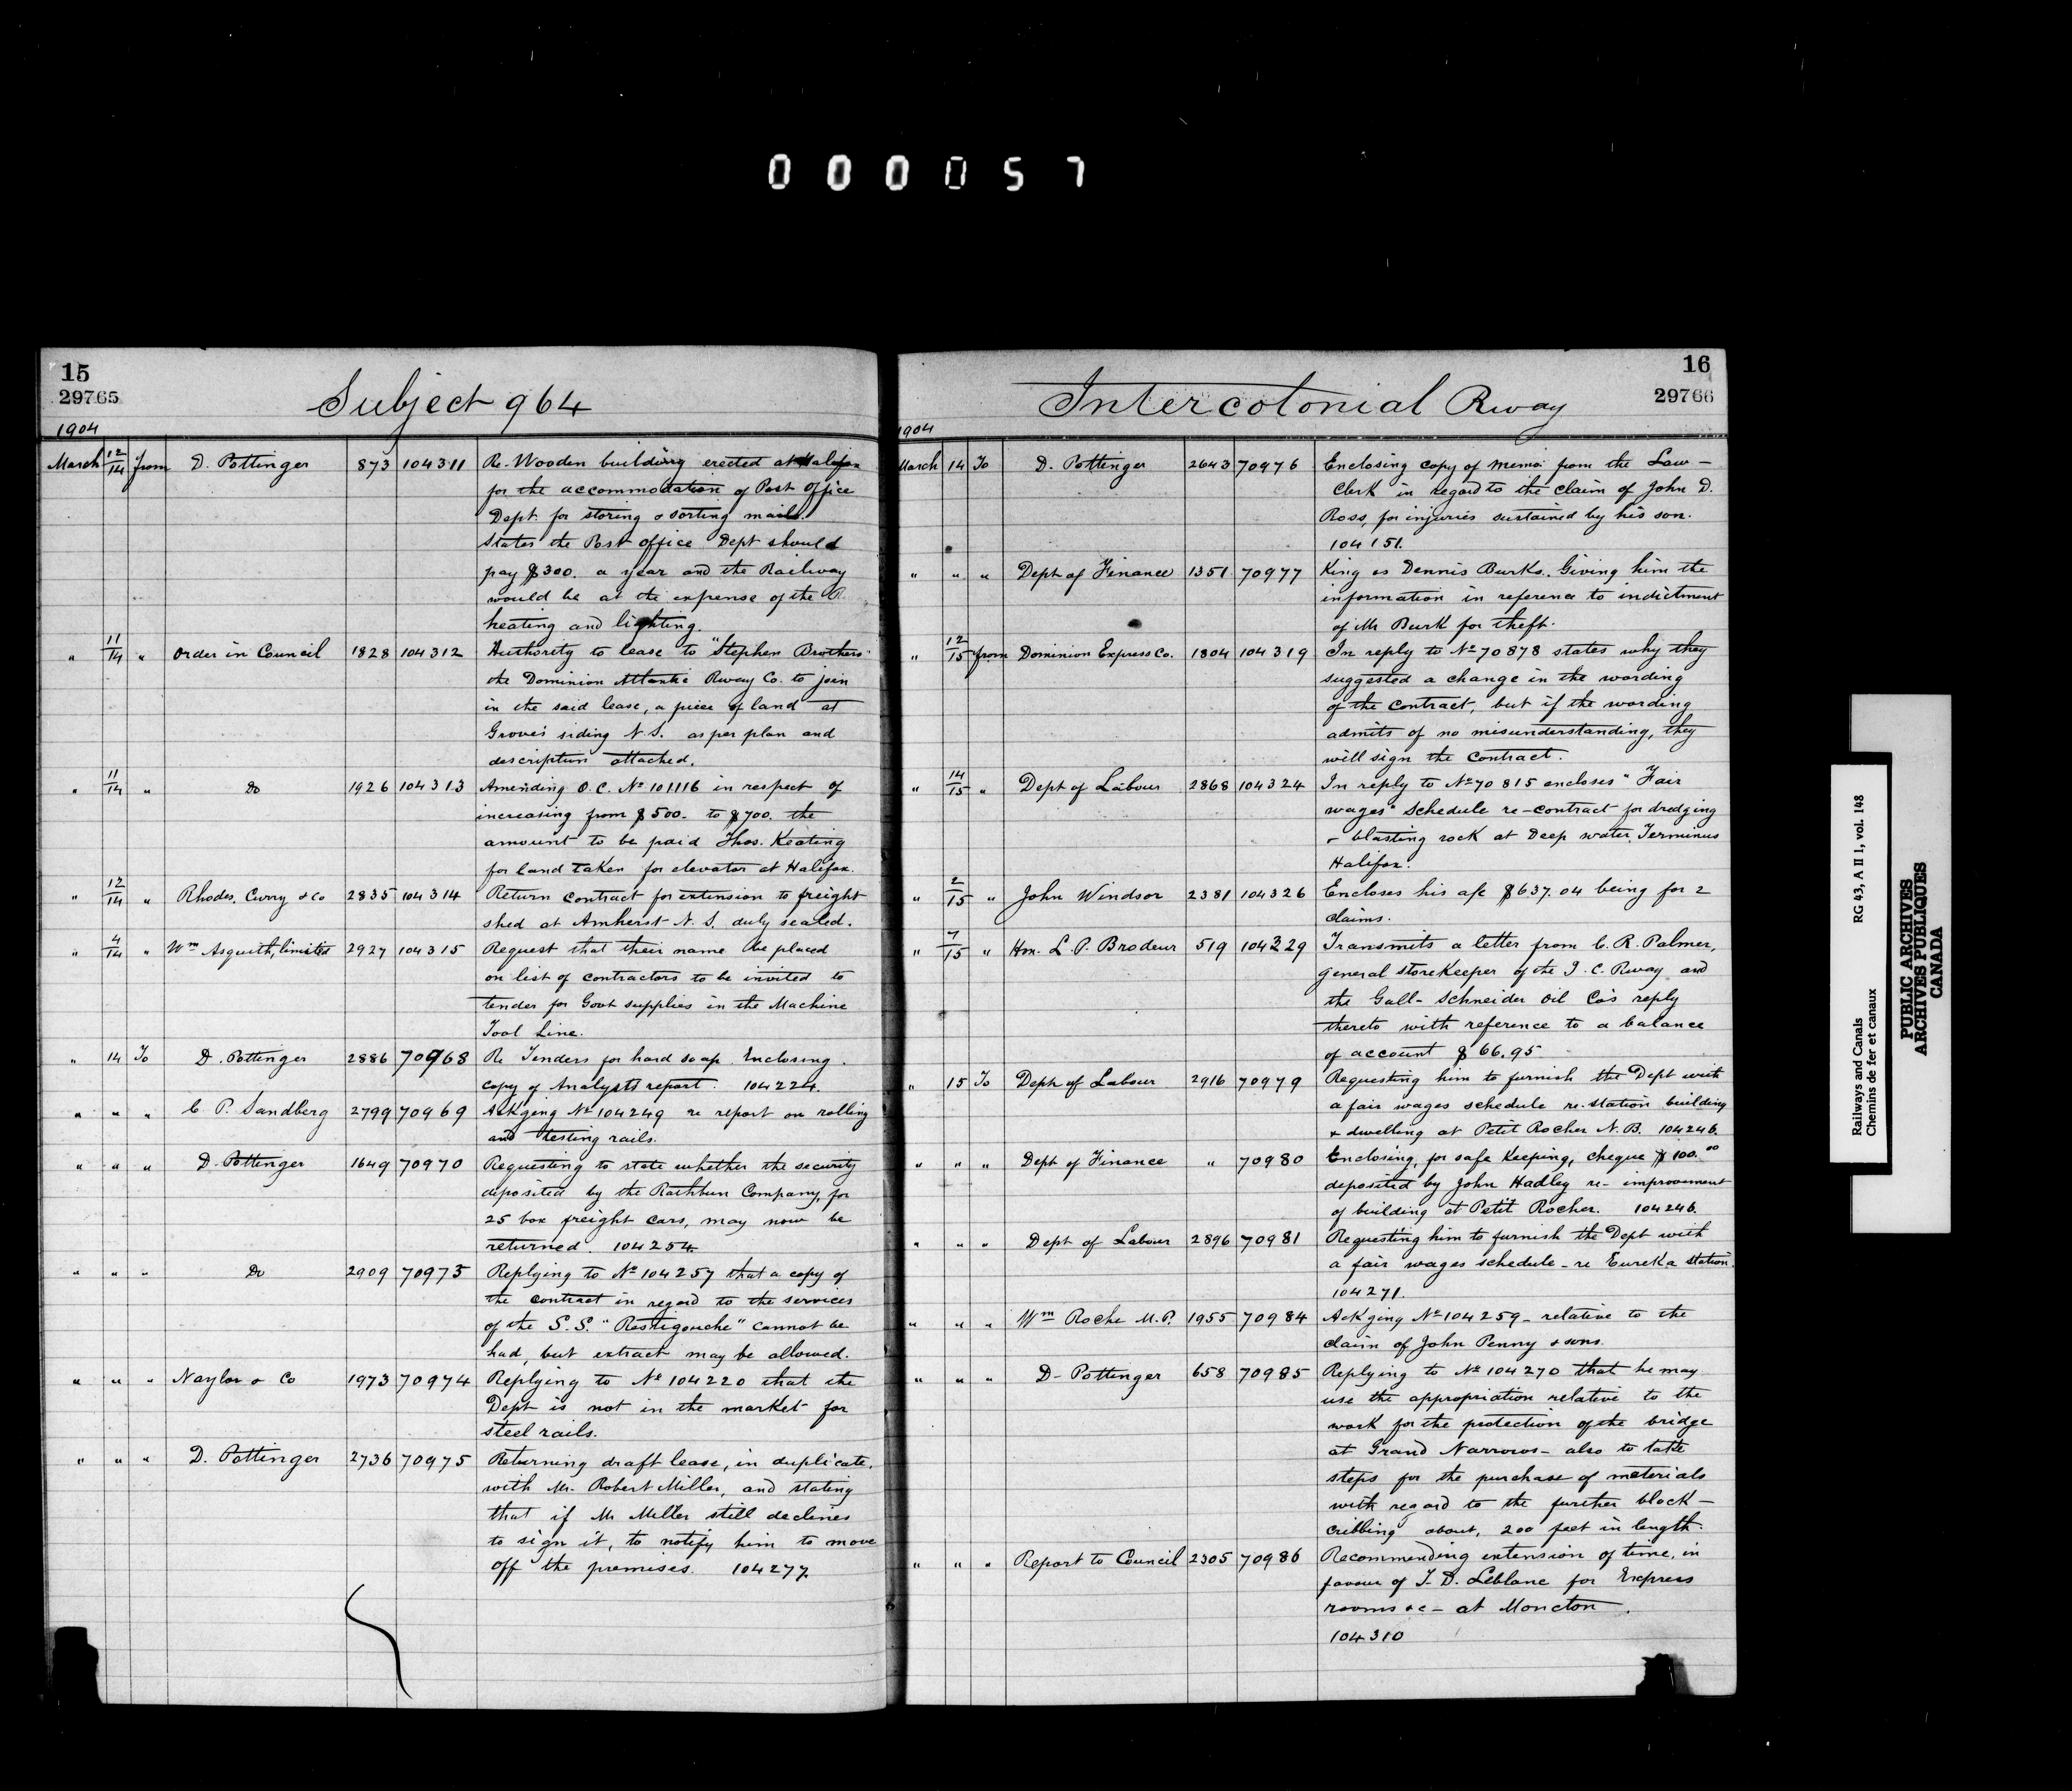 000057
15
29765
Subject 964
1904
March 12/14 from D. Pottinger 873 104311 Re. Wooden building erected at Halifax
for the accommodation of Post Office
Dept. for storing & sorting mails.
States the Post office Dept should
pay $300. a year and the Railway
would be at the expense of the
heating and lighting.
" 11/14 " Order in Council 1828 104312 Authority to lease to "Stephen Brothers"
the Dominion Atlantic Rway Co. to join
in the said lease, a piece of land at
Grove's siding N.S. as per plan and
description attached.
" 11/14 " Do 1926 104313 Amending O.C. No 101116 in respect of
increasing from $500. to $700. the
amount to be paid Thos. Keating
for land taken for elevator at Halifax.
" 12/14 " Rhodes, Curry & Co 2835 104314 Return contract for extension to freight
shed at Amherst N.S. duly sealed.
" 4/14 " Wm Asquith, limited 2927 104315 Request that their name be placed
on list of contractors to be invited to
tender for Govt supplies in the Machine
Tool Line.
" 14 To D. Pottinger 2886 70968 Re Tenders for hard soap. Enclosing
copy of Analysts report. 104224.
" " " C P. Sandberg 2799 70969 Ackging No 104249 re report on rolling
and testing rails.
" " " D. Pottinger 1649 70970 Requesting to state whether the security
deposited by the Rathbun Company, for
25 box freight cars, may now be
returned. 104254.
" " " Do 2909 70973 Replying to No 104257 that a copy of
the contract in regard to the services
of the S.S. "Restigouche" cannot be
had, but extract may be allowed.
" " " Naylor & Co 1973 70974 Replying to No 104220 that the
Dept is not in the market for
steel rails.
" " " D. Pottinger 2736 70975 Returning draft lease, in duplicate,
with Mr. Robert Miller, and stating
that if Mr Miller still declines
to sign it, to notify him to move
off the premises. 104277.
16
29766
Intercolonial Rway
1904
March 14 To D. Pottinger 2643 70976 Enclosing copy of memo: from the Law-
Clerk in regard to the claim of John D.
Ross, for injuries sustained by his son.
104151.
" " " Dept of Finance 1351 70977 King vs Dennis Burks. Giving him the
information in reference to indictment
of Mr Burk for theft.
" 12/15 from Dominion Express Co. 1804 104319 In reply to No 70878 states why they
suggested a change in the wording
of the contract, but if the wording
admits of no misunderstanding, they
will sign the contract.
" 14/15 " Dept of Labour 2868 104324 In reply to No 70815 encloses "Fair
wages" Schedule re-contract for dredging
& blasting rock at Deep water Terminus
Halifax.
" 2/15 " John Windsor 2381 104326 Encloses his a/c $637.04 being for 2
claims.
" 7/15 " Hon. L. P. Brodeur 519 104329 Transmits a letter from C. R. Palmer,
general storekeeper of the I. C. Rway and
the Gall-Schneider Oil Co's reply
thereto with reference to a balance
of account $66.95
" 15 To Dept of Labour 2916 70979 Requesting him to furnish the Dept with
a fair wages schedule re. station building
& dwelling at Petit Rocher N.B. 104246.
" " " Dept of Finance " 70980 Enclosing, for safe keeping, cheque $100.00
deposited by John Hadley re- improvement
of building at Petit Rocher. 104246.
" " " Dept of Labour 2896 70981 Requesting him to furnish the Dept with
a fair wages schedule - re Eureka Station.
104271.
" " " Wm Roche M.P. 1955 70984 Ackging No 104259 - relative to the
claim of John Penny & sons.
" " " D. Pottinger 658 70985 Replying to No 104270 that he may
use the appropriation relative to the
work for the protection of the bridge
at Grand Narrows - also to take
steps for the purchase of materials
with regard to the further block-
cribbing about, 200 feet in length.
" " " Report to Council 2305 70986 Recommending extension of time, in
favour of T. D. Leblanc for Express
rooms &c - at Moncton.
104310
Railways and Canals RG 43, A II 1, vol. 148
Chemins de fer et canaux
PUBLIC ARCHIVES
ARCHIVES PUBLIQUES
CANADA